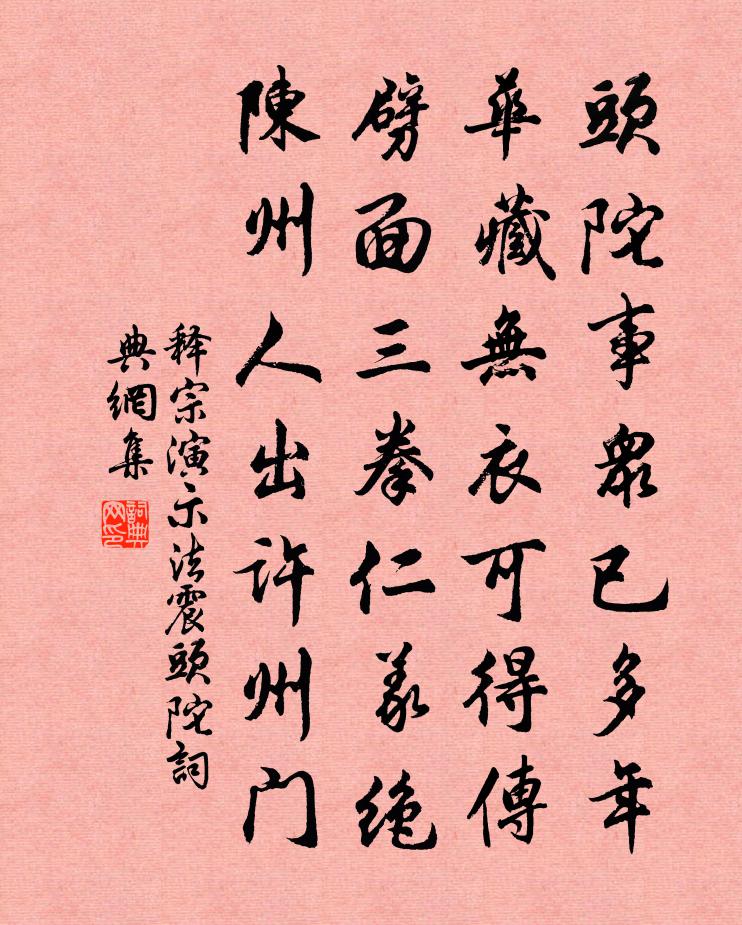 頭陀事眾已多年
華藏無衣可得傳
劈面三拳仁義絕
陳州人出許州門
释宗演示法震頭陀詞
典網集
詞典網印